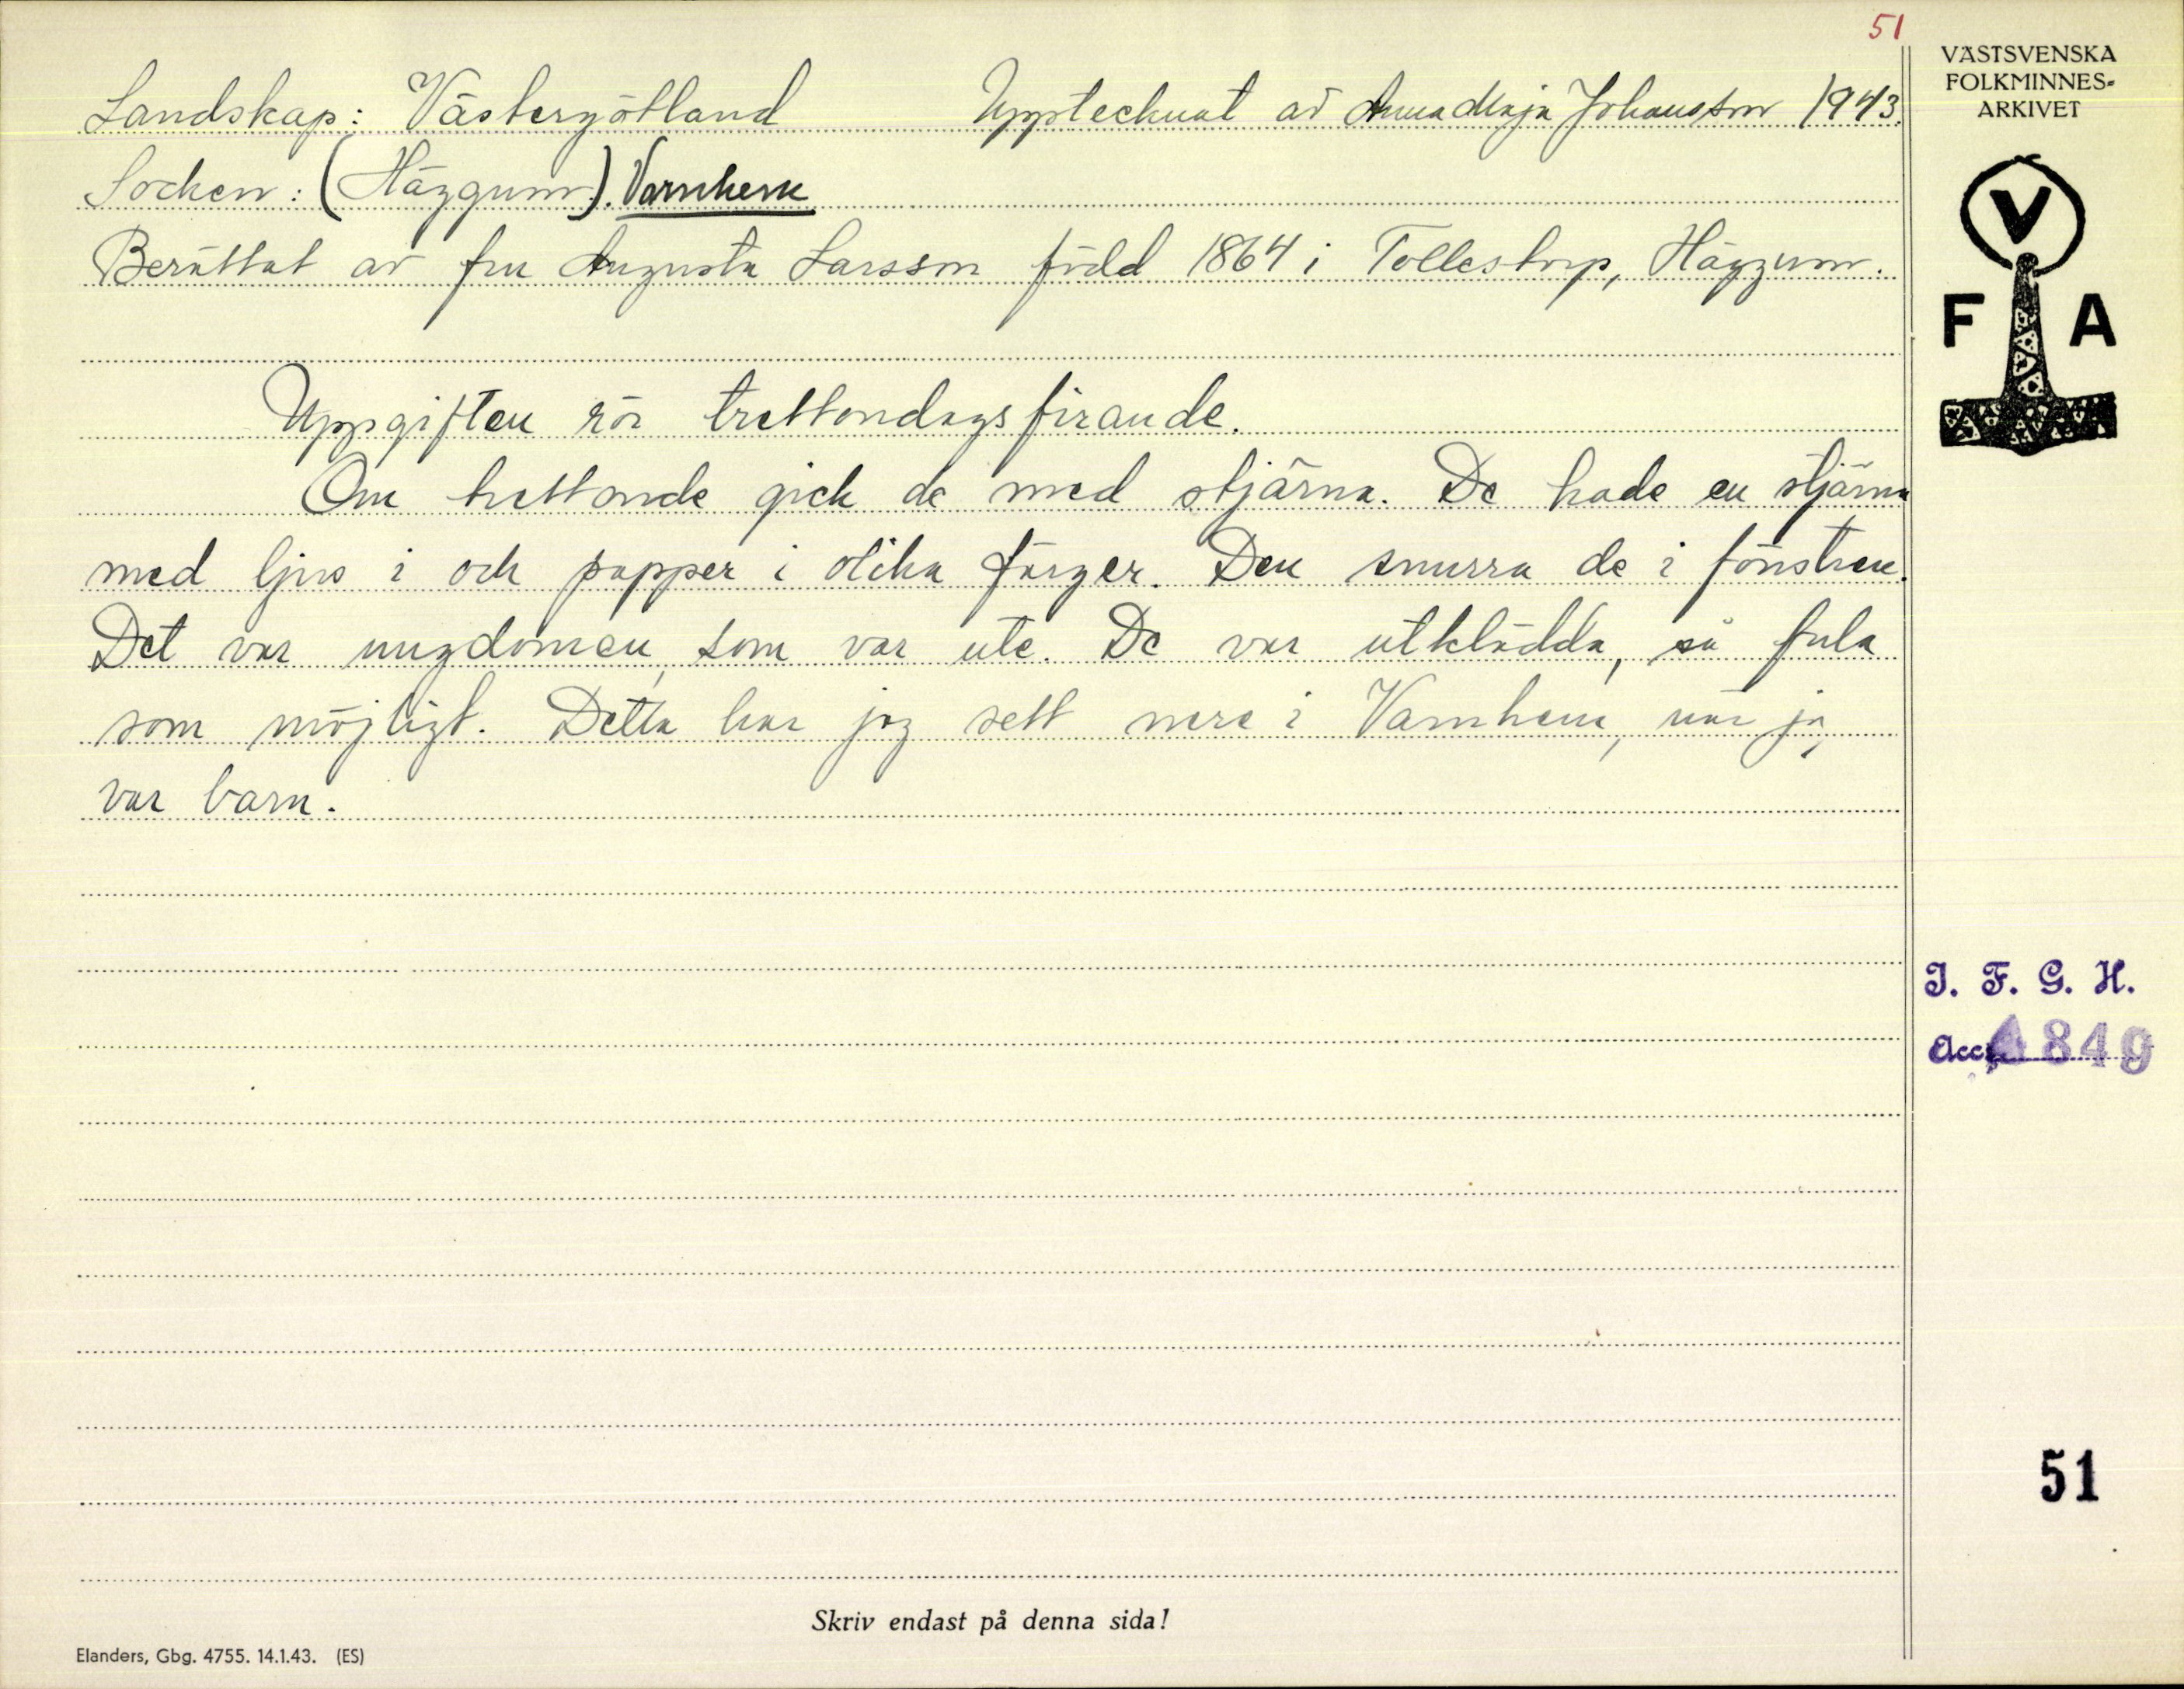 51
Landskap: Västergötland Upptecknat av Anna Maja Johansson 1943.
Socken: (Häggum). Varnhem
Berättat av fru Augusta Larsson född 1864 i Tollestorp, Häggum.
Uppgiften rör trettondagsfirande.
Om trettonde gick de med stjärna. De hade en stjärna
med ljus i och papper i olika färger. Den snurra de i fönstren.
Det var ungdomen, som var ute. De var utklädda, så fula
som möjligt. Detta har jag sett nere i Varnhem, när jag
var barn.
VÄSTSVENSKA
FOLKMINNES-
ARKIVET
V
F A
I. F. G. H.
Acc. 4849
51
Skriv endast på denna sida!
Elanders, Gbg. 4755. 14.1.43. (ES)